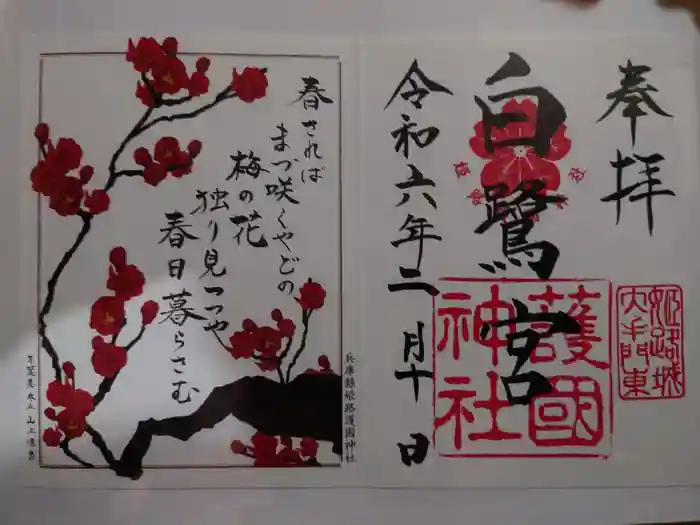 奉拝
白鷺宮
令和六年二月十日
姫路城
大手門東
護國
神社
春されば
まづ咲くやどの
梅の花
独り見つつや
春日暮らさむ
兵庫縣姫路護國神社